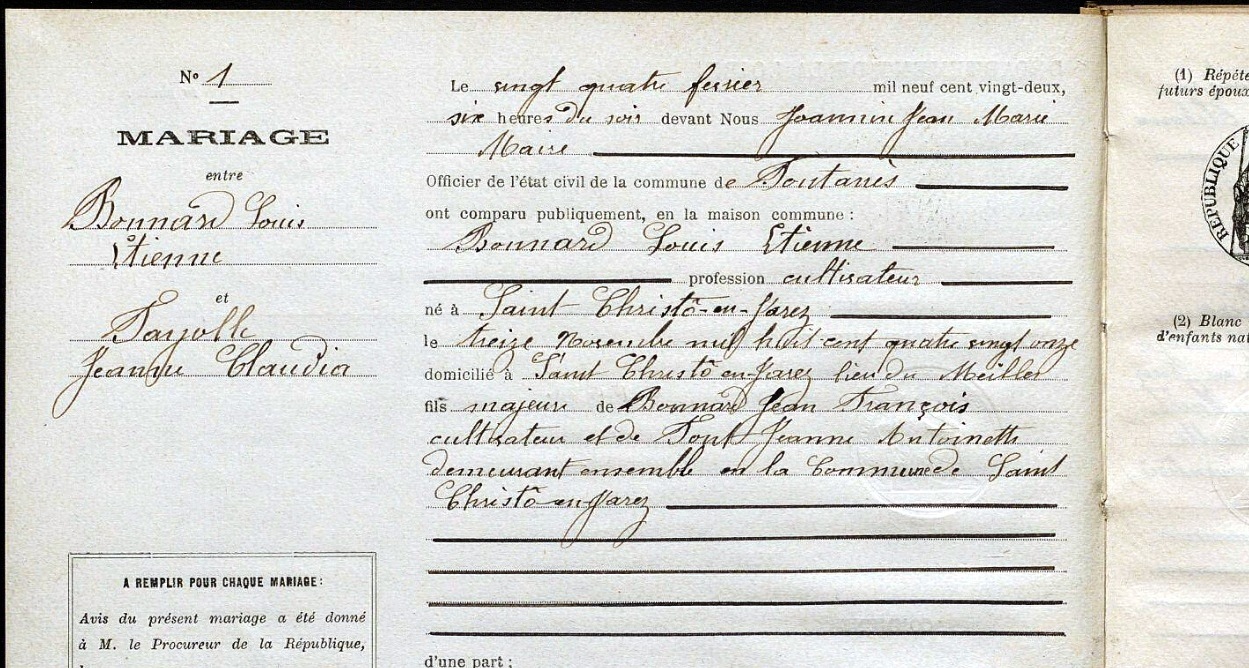 N° 1
MARIAGE
entre
Bonnard Louis
Etienne
et
Fayolle
Jeanne Claudia
A REMPLIR POUR CHAQUE MARIAGE :
Avis du présent mariage a été donné
à M. le Procureur de la République,
Le vingt quatre fevrier mil neuf cent vingt-deux,
six heures du soir devant Nous Joannin Jean Marie
Maire
Officier de l'état civil de la commune de Fontanès
ont comparu publiquement, en la maison commune :
Bonnard Louis Etienne
profession cultivateur
né à Saint Christô-en-Jarez
le treize Novembre mil huit cent quatre vingt onze
domicilié à Saint Christô en-Jarez lieu du Meiller
fils majeur de Bonnard Jean François
cultivateur et de Font Jeanne Antoinette
demeurant ensemble en la Commune de Saint
Christô-en-Jarez
d'une part ;
(1) Répéte
futurs époux
RÉPUBLIQUE
(2) Blanc
d'enfants nat